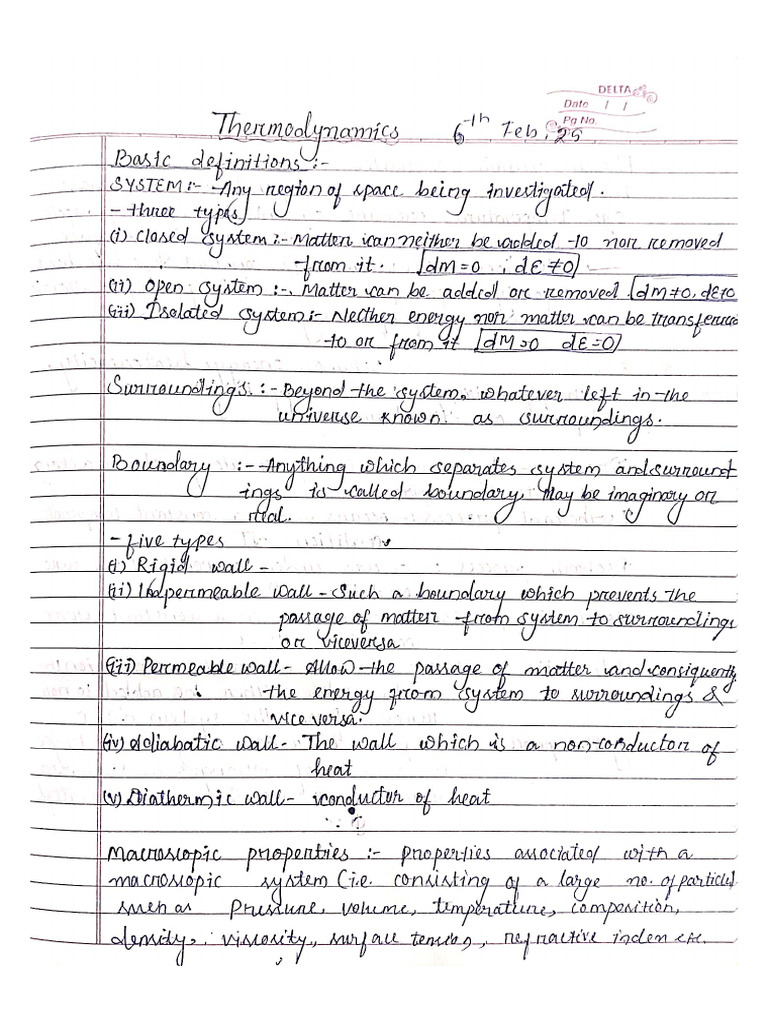 DELTA
Date / /
Pg No.
Thermodynamics 6th Feb, 25
Basic definitions :-
SYSTEM :- Any region of space being investigated.
- three types
(i) Closed system :- Matter can neither be added to nor removed
from it. dM=0, dE≠0
(ii) Open system :- Matter can be added or removed dM≠0, dE≠0
(iii) Isolated system :- Neither energy nor matter can be transferred
to or from it dM=0 dE=0
Surroundings :- Beyond the system, whatever left in the
universe known as surroundings.
Boundary :- Anything which separates system and surround
ings is called boundary, May be imaginary or
real.
- five types
(i) Rigid wall -
(ii) Impermeable wall - Such a boundary which prevents the
passage of matter from system to surroundings
or viceversa
(iii) Permeable wall - Allow the passage of matter and consiquently
the energy from system to surroundings &
vice versa.
(iv) Adiabatic wall - The wall which is a non-conductor of
heat
(v) Diathermic wall - conductor of heat
Macroscopic properties :- properties associated with a
macroscopic system (i.e. consisting of a large no. of particles
such as Pressure, volume, temperature, composition,
density, viscosity, surface tension, refractive index etc.